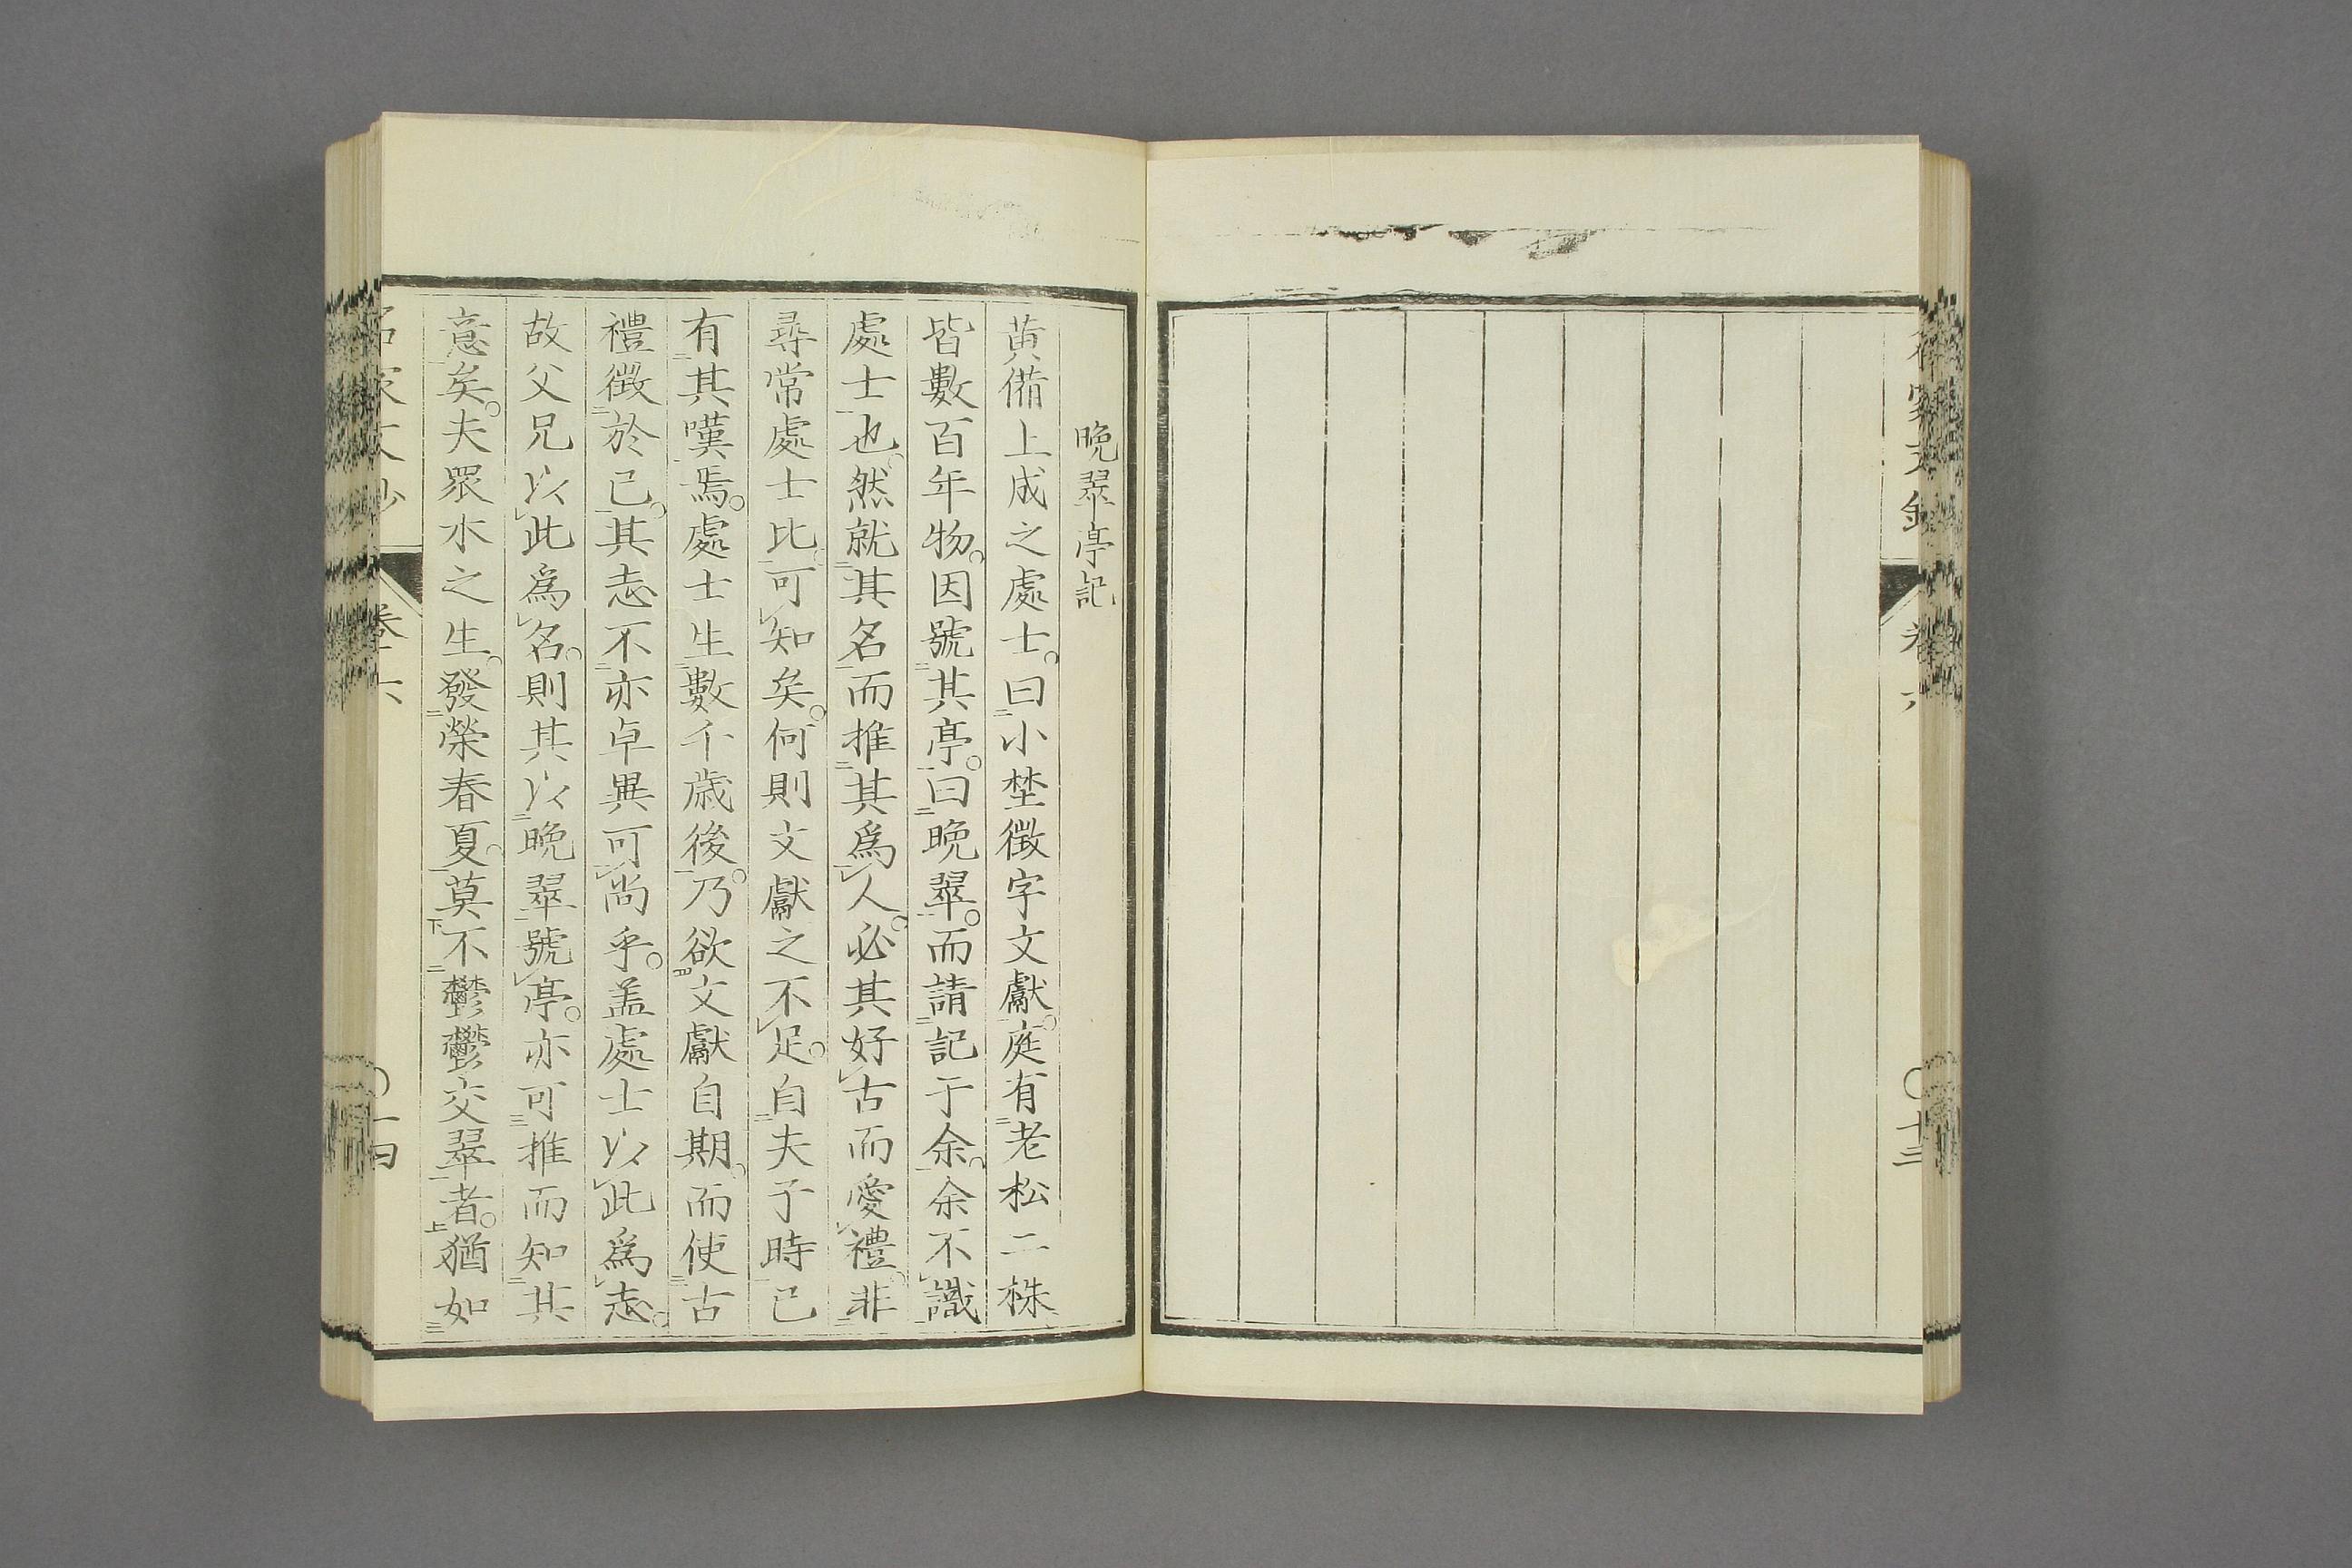 晩翠亭記
黄備上成之處士。曰小埜徴字文獻。庭有老松二株
皆數百年物。因號其亭。曰晩翠。而請記于余。余不識
處士也。然就其名而推其爲人。必其好古而愛禮。非
尋常處士比。可知矣。何則文獻之不足。自夫子時已
有其嘆焉。處士生數千歳後。乃欲文獻自期。而使古
禮徴於己。其志不亦卓異可尚乎。盖處士以此爲志。
故父兄以此爲名。則其以晩翠號亭。亦可推而知其
意矣。夫衆木之生。發榮春夏。莫不鬱鬱交翠者。猶如
卷六
十四
卷六
十三